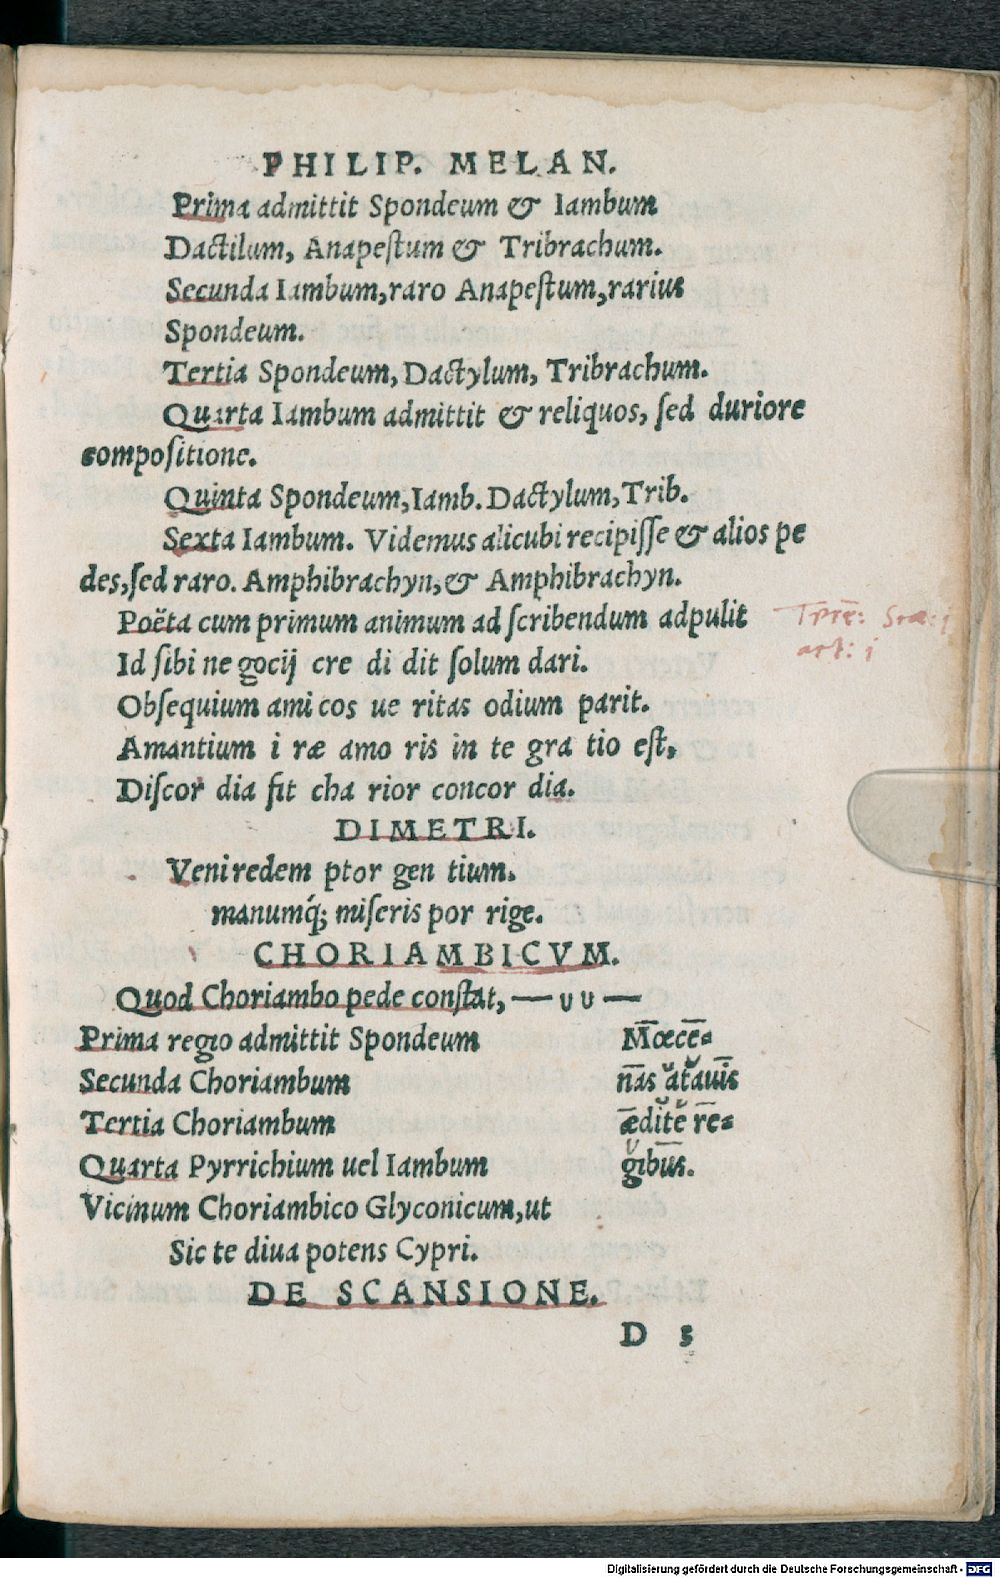 PHILIP. MELAN.
Prima admittit Spondeum & Iambum
Dactilum, Anapestum & Tribrachum.
Secunda Iambum, raro Anapestum, rarius
Spondeum.
Tertia Spondeum, Dactylum, Tribrachum.
Quarta Iambum admittit & reliquos, sed duriore
compositione.
Quinta Spondeum, Iamb. Dactylum, Trib.
Sexta Iambum. Videmus alicubi recipisse & alios pe
des, sed raro. Amphibrachyn, & Amphibrachyn.
Poëta cum primum animum ad scribendum adpulit
Id sibi ne gocij cre di dit solum dari.
Obsequium ami cos ue ritas odium parit.
Amantium i ræ amo ris in te gra tio est,
Discor dia fit cha rior concor dia.
DIMETRI.
Veni redem ptor gen tium.
manumq́; miseris por rige.
CHORIAMBICVM.
Quod Choriambo pede constat, — υ υ —
Prima regio admittit Spondeum M̅œcē=
Secunda Choriambum nās ătăuīs
Tertia Choriambum ǣdĭtĕ rē=
Quarta Pyrrichium uel Iambum gĭbūs.
Vicinum Choriambico Glyconicum, ut
Sic te diua potens Cypri.
DE SCANSIONE.
D 5
Digitalisierung gefördert durch die Deutsche Forschungsgemeinschaft - DFG